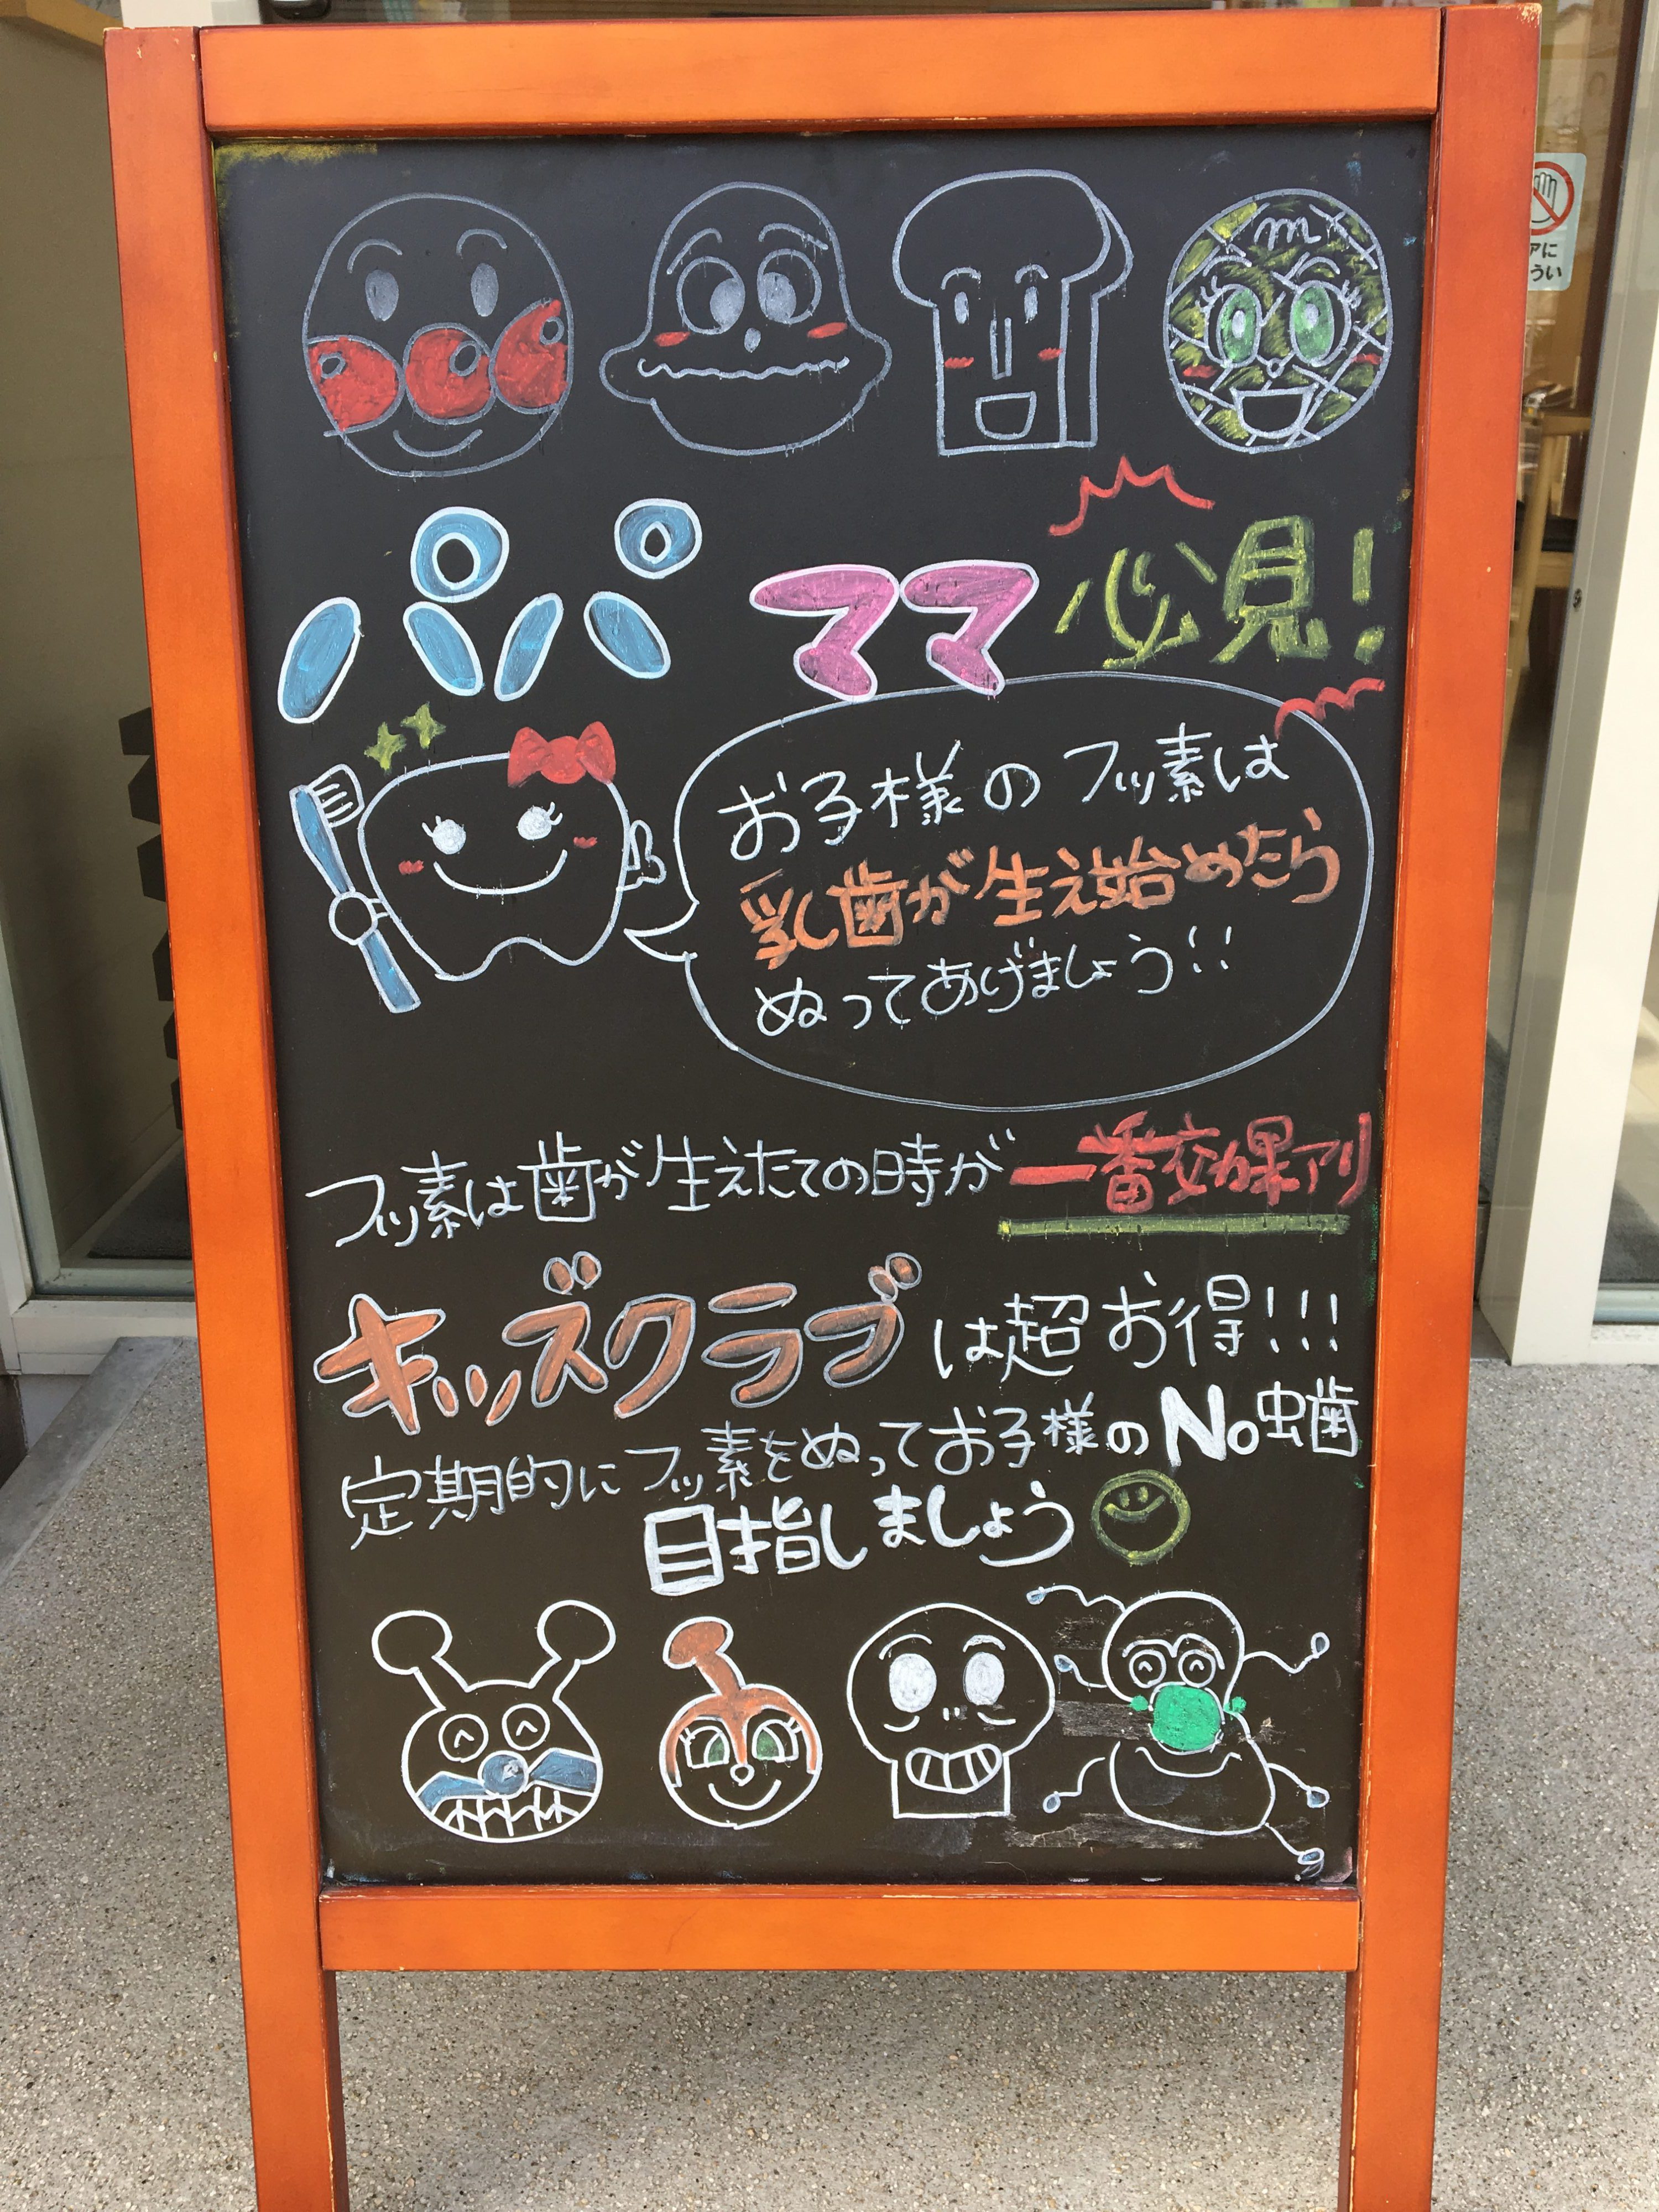 m
パパ ママ 必見!
お子様のフッ素は
乳歯が生え始めたら
ぬってあげましょう!!
フッ素は歯が生えたての時が一番効果アリ
キッズクラブは超お得!!!
定期的にフッ素をぬってお子様のNo虫歯
目指しましょう